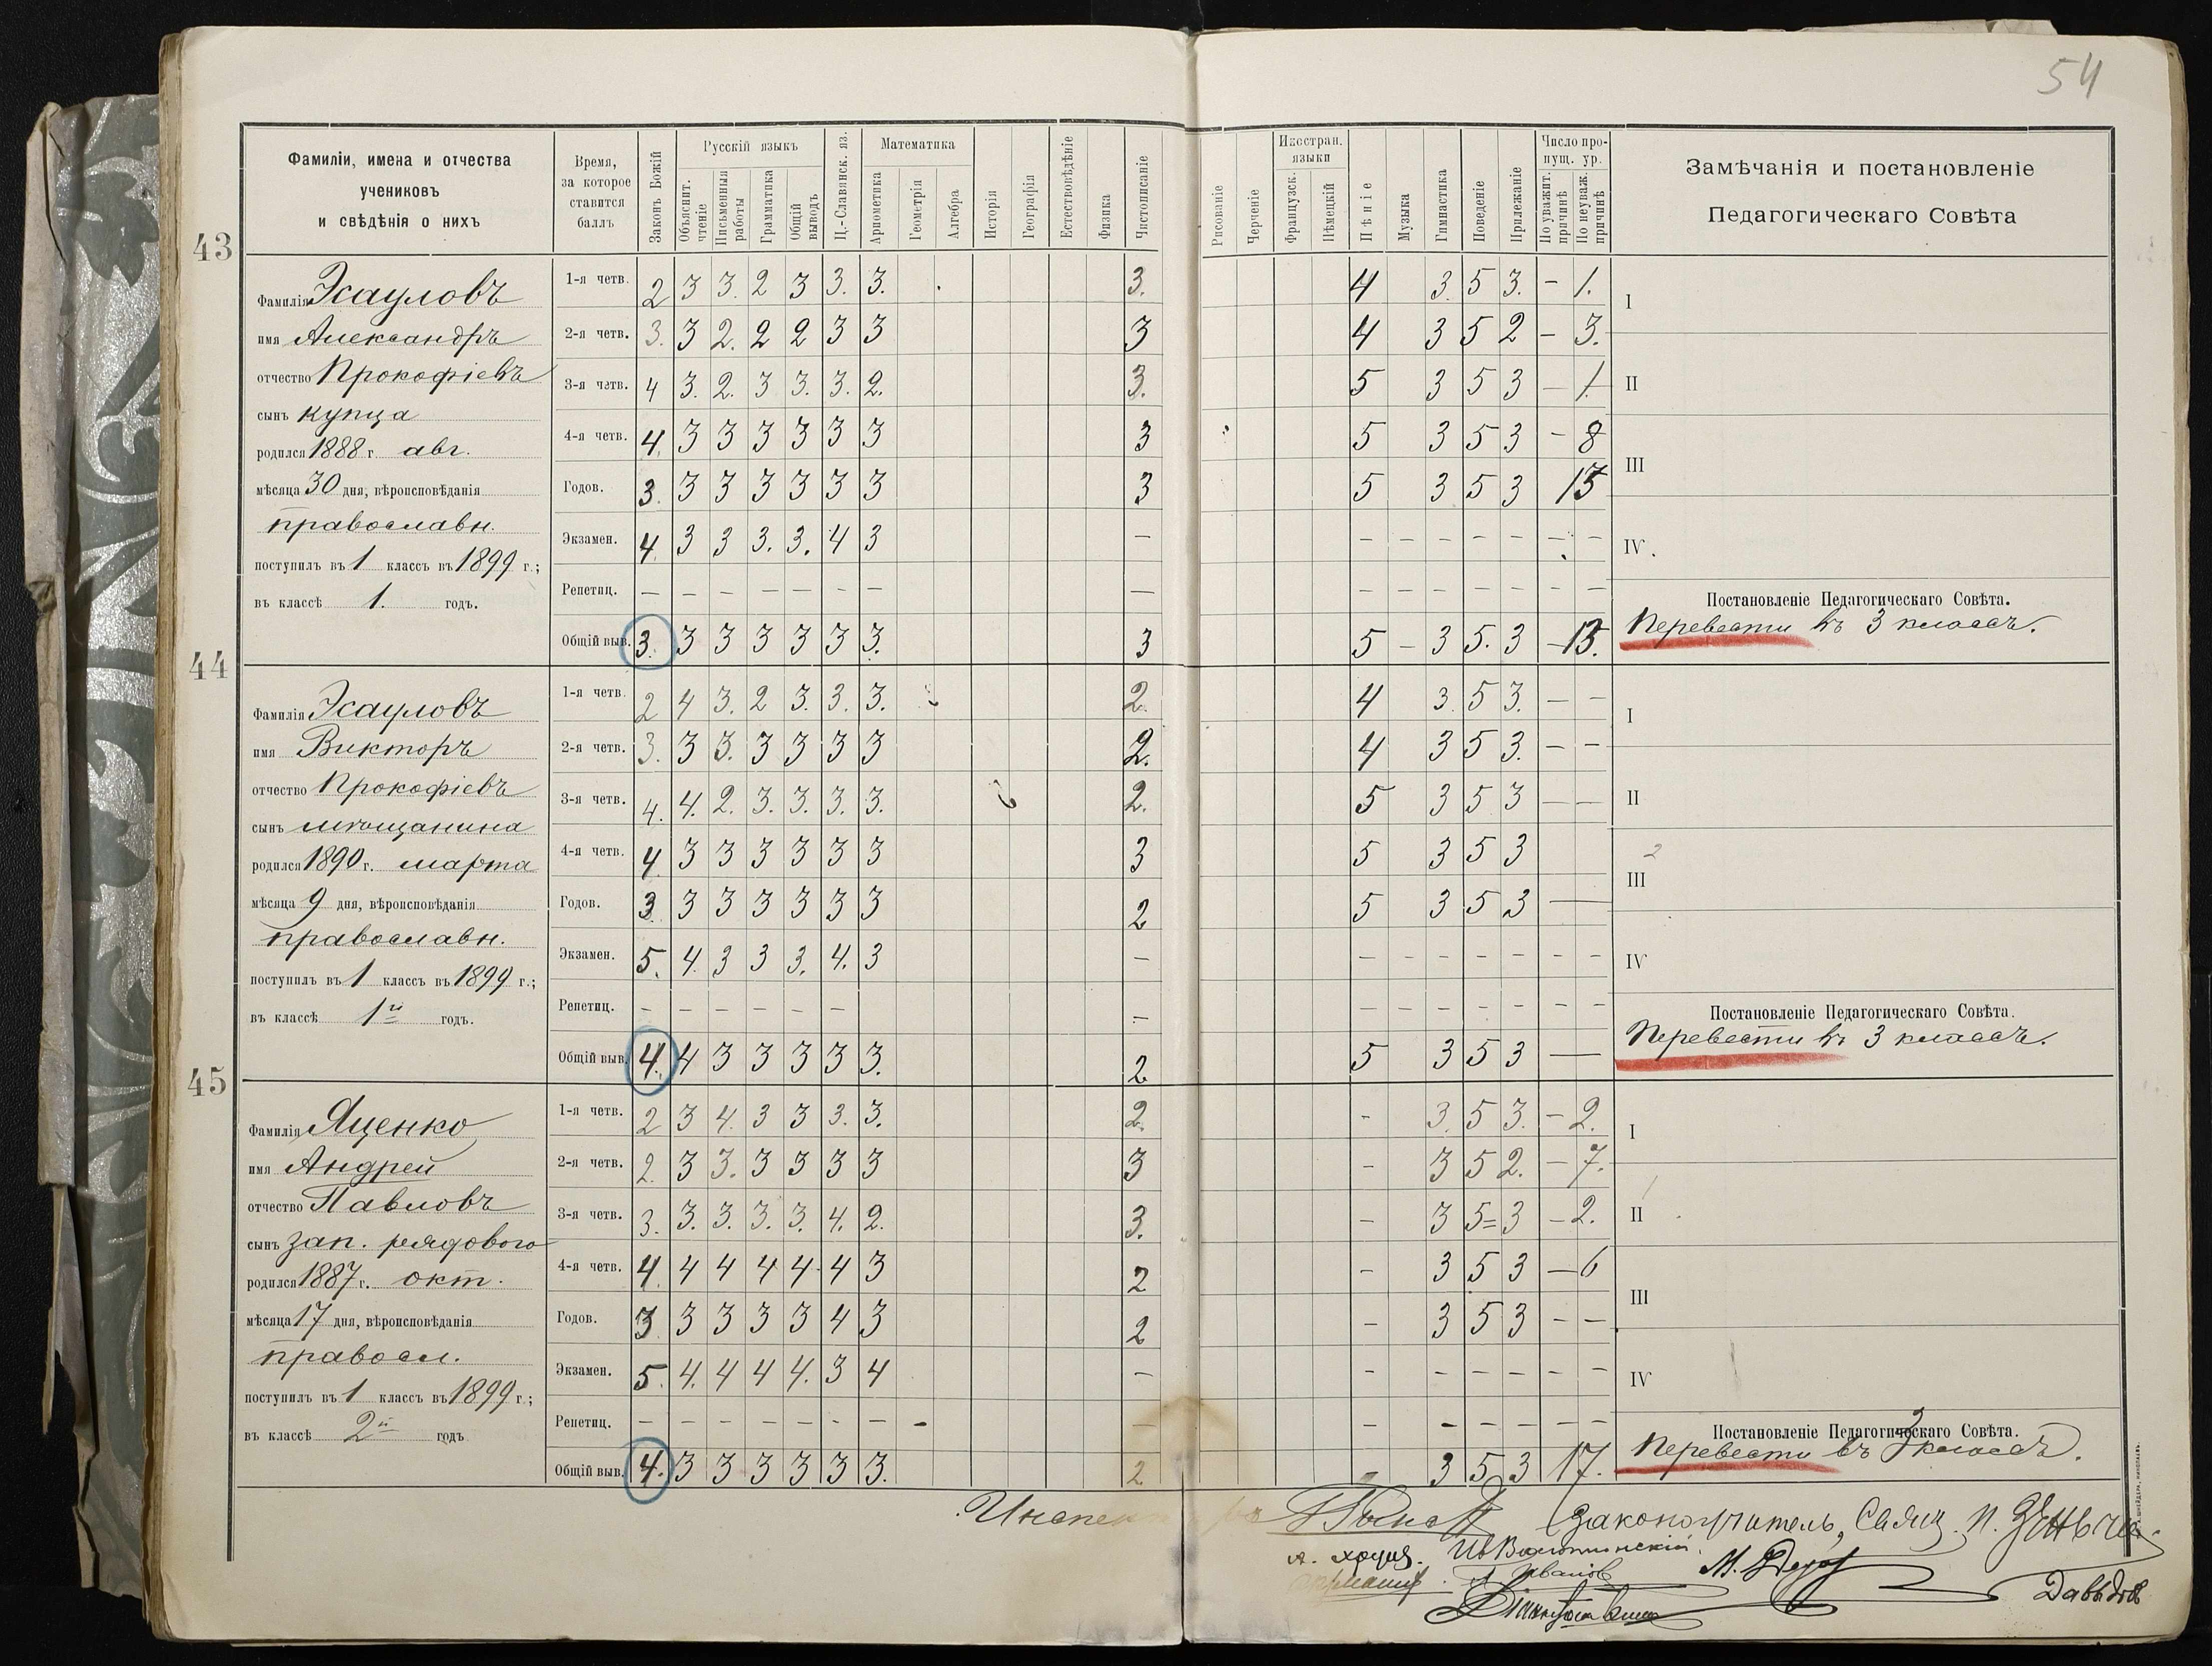 54
Фамиліи, имена и отчества
учениковъ
и свѣдѣнія о нихъ
Время,
за которое
ставится
баллъ
Законъ Божій
Русскій языкъ
Объяснит. чтеніе
Письменныя работы
Грамматика
Общій выводъ
Ц.-Славянск. яз.
Математика
Ариѳметика
Геометрія
Алгебра
Исторія
Географія
Естествовѣдѣніе
Физика
Чистописаніе
Рисованіе
Черченіе
Иностран. языки
Французск.
Нѣмецкій
Пѣніе
Музыка
Гимнастика
Поведеніе
Прилежаніе
Число пропущ. ур.
По уважит. причинѣ
По неуваж. причинѣ
Замѣчанія и постановленіе
Педагогическаго Совѣта
43
Фамилія Эсауловъ
имя Александръ
отчество Прокофіевъ
сынъ купца
родился 1888 г. авг.
мѣсяца 30 дня, вѣроисповѣданія
православн.
поступилъ въ 1 классъ въ 1899 г.;
въ классѣ 1. годъ.
1-я четв. 2 3 3. 2 3 3. 3. 3. 4 3. 5 3. – 1.
2-я четв. 3. 3 2. 2 2 3 3 3 4 3 5 2 – 3.
3-я четв. 4 3. 2. 3 3. 3. 2. 3. 5 3 5 3 – 1
4-я четв. 4. 3 3 3 3 3 3 3 5 3 5 3 – 8
Годов. 3. 3 3 3 3 3 3 3 5 3 5 3 13
Экзамен. 4. 3 3 3. 3. 4 3 – – – – – – – –
Репетиц. – – – – – – – – – – – – – – –
Общій выв. 3. 3 3 3 3 3 3. 3 5 – 3 5. 3 – 13.
I
II
III
IV.
Постановленіе Педагогическаго Совѣта.
Перевести въ 3 классъ.
44
Фамилія Эсауловъ
имя Викторъ
отчество Прокофіевъ
сынъ мѣщанина
родился 1890 г. марта
мѣсяца 9 дня, вѣроисповѣданія
православн.
поступилъ въ 1 классъ въ 1899 г.;
въ классѣ 1й годъ.
1-я четв. 2 4 3. 2 3. 3. 3. 2. 4 3. 5 3. – –
2-я четв. 3. 3 3. 3 3 3 3 2. 4 3 5 3. – –
3-я четв. 4. 4. 2. 3. 3. 3. 3. 2. 5 3 5 3 – –
4-я четв. 4. 3 3 3 3 3 3 3 5 3 5 3
Годов. 3 3 3 3 3 3 3 2 5 3 5 3 —
Экзамен. 5. 4. 3 3 3. 4. 3 – – – – – – – –
Репетиц. – – – – – – – – – – – – – –
Общій выв. 4. 4 3 3 3 3 3. 2 5 3 5 3 —
I
II
2
III
IV
Постановленіе Педагогическаго Совѣта.
Перевести въ 3 классъ.
45
Фамилія Яценко
имя Андрей
отчество Павловъ
сынъ зап. рядового
родился 1887 г. окт.
мѣсяца 17 дня, вѣроисповѣданія
правосл.
поступилъ въ 1 классъ въ 1899 г.;
въ классѣ 2й годъ
1-я четв. 2 3 4. 3 3 3. 3. 2. - 3. 5 3. – 2.
2-я четв. 2. 3 3. 3 3 3 3 3 - 3 5 2. – 7.
3-я четв. 3. 3. 3. 3. 3. 4. 2. 3. - 3 5= 3 – 2.
4-я четв. 4. 4 4 4 4 4 3 2 - 3 5 3 – 6
Годов. 3 3 3 3 3 4 3 2 - 3 5 3 – –
Экзамен. 5. 4. 4 4 4. 3 4 – - – – – – –
Репетиц. – – – – – – – – – – – – – – –
Общій выв. 4. 3 3 3 3 3 3. 2 3 5 3 17.
I
II
III
IV
Постановленіе Педагогическаго Совѣта.
Перевести въ 3 классъ.
Законоучитель, Свящ. П.
М.
Ивановъ
Давыдов